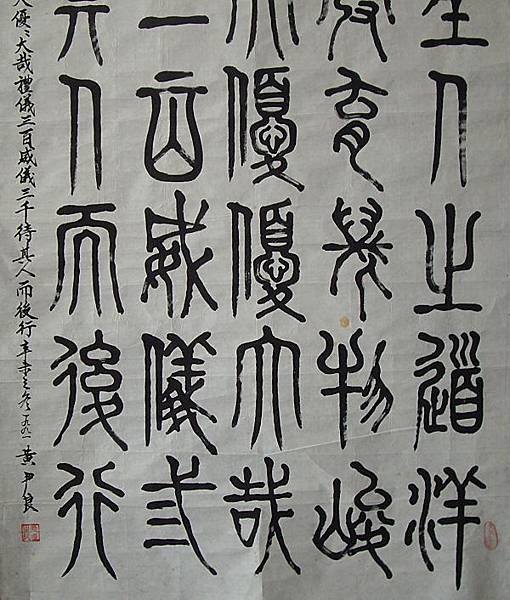 聖人之道洋
發育萬物峻
天優優大哉
三百威儀弎
其人而後行
天優〻大哉禮儀三百威儀三千待其人而後行辛未之冬一九九一黃尹良